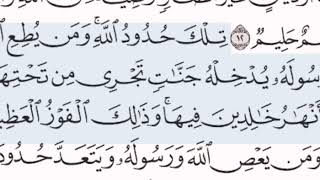 مٌ حَلِيمٌ ١٢ تِلْكَ حُدُودُ ٱللَّهِ ۚ وَمَن يُطِعِ
سُولَهُۥ يُدْخِلْهُ جَنَّـٰتٍ تَجْرِى مِن تَحْتِهَا
أَنْهَـٰرُ خَـٰلِدِينَ فِيهَا ۚ وَذَٰلِكَ ٱلْفَوْزُ ٱلْعَظِي
وَمَن يَعْصِ ٱللَّهَ وَرَسُولَهُۥ وَيَتَعَدَّ حُدُو